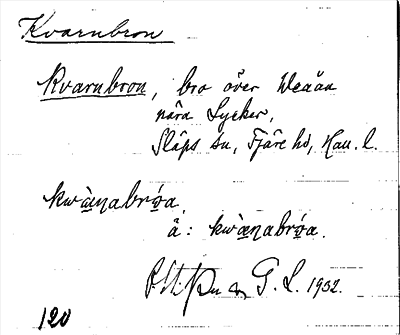 Kvarnbron
Kvarnbron, bro över
nära Lycker,
Släps sn, Fjäre hd, Hall. l.
kwànabróa
å: kwànabróa.
G. L. 1932.
120